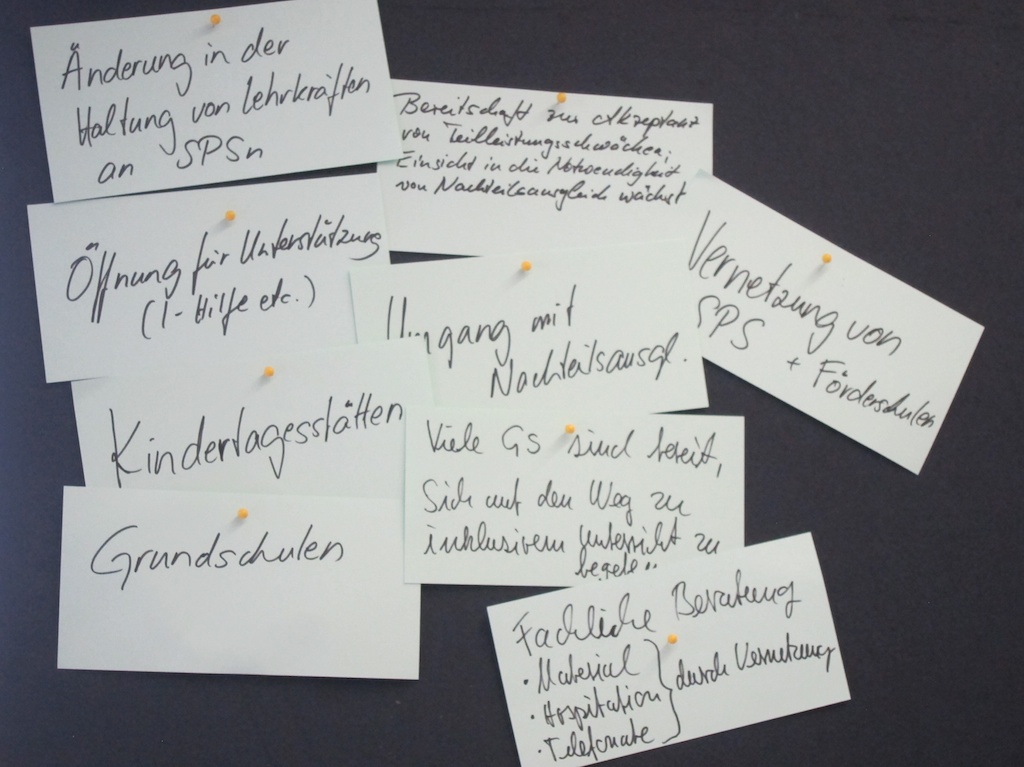 Änderung in der
Haltung von Lehrkräften
an SPSn
Bereitschaft zur Akzeptanz
von Teilleistungsschwächen;
Einsicht in die Notwendigkeit
von Nachteilsausgleich wächst
Öffnung für Unterstützung
(I-Hilfe etc.)
Umgang mit
Nachteilsausgl.
Vernetzung von
SPS
+ Förderschulen
Kindertagesstätten
Viele GS sind bereit,
sich auf den Weg zu
inklusivem Unterricht zu
begeben
Grundschulen
Fachliche Beratung
· Material
· Hospitation } durch Vernetzung
· Telefonate